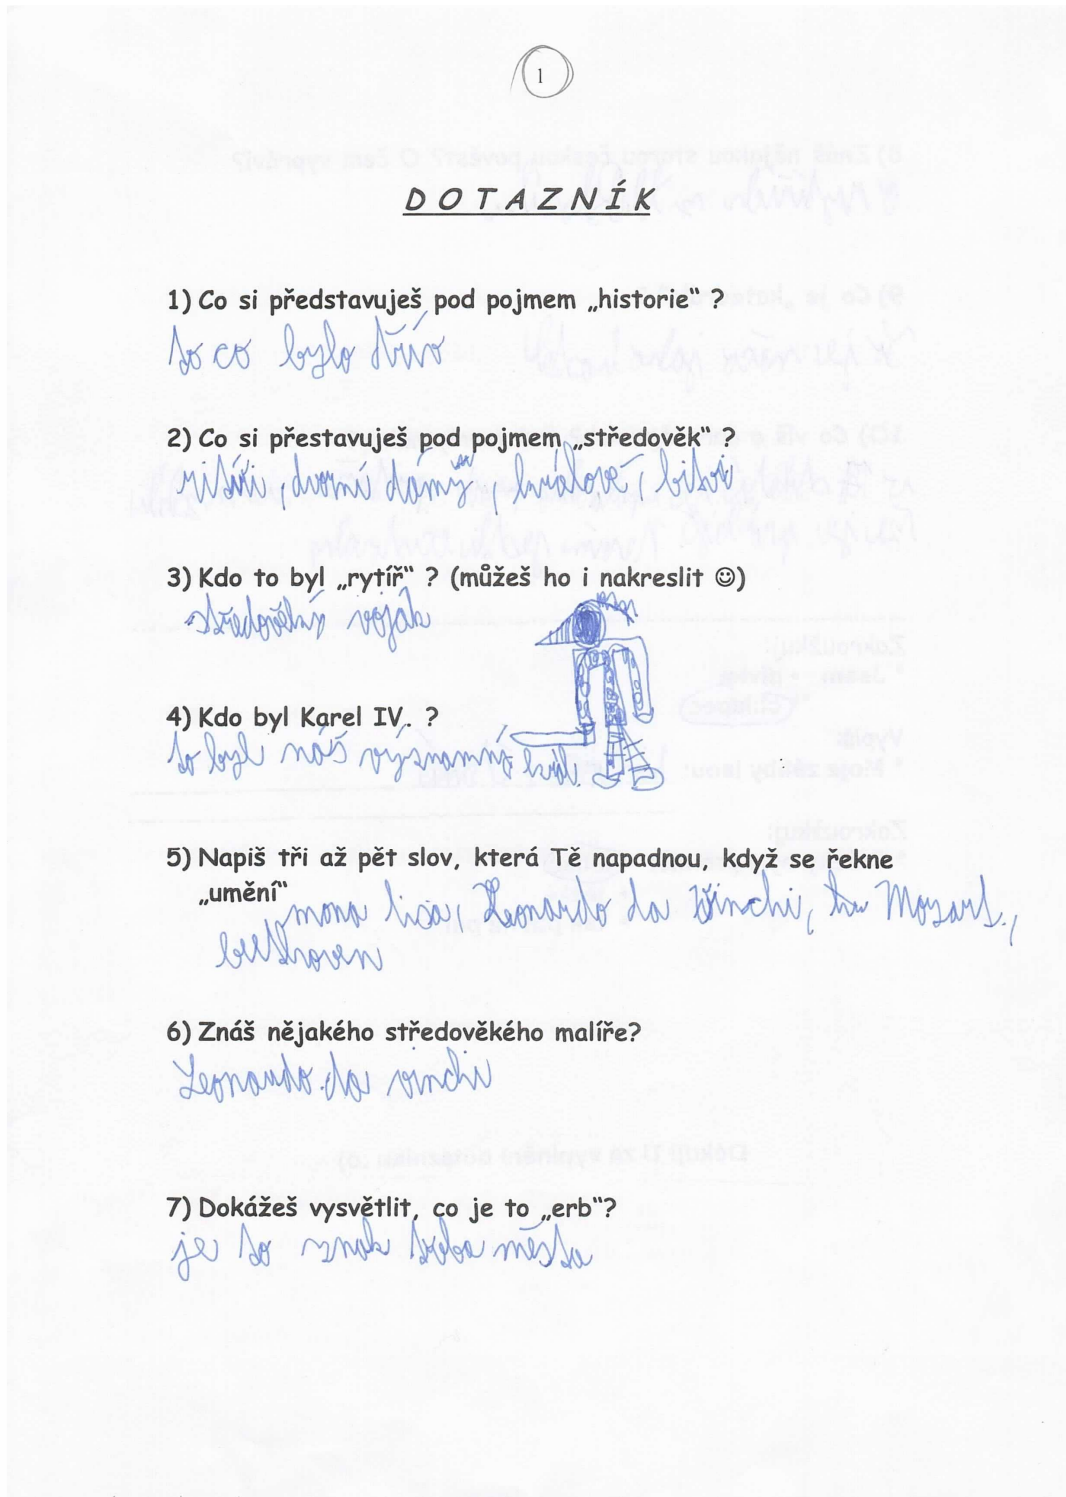 1
DOTAZNÍK
1) Co si představuješ pod pojmem „historie“ ?
to co bylo dřív
2) Co si přestavuješ pod pojmem „středověk“ ?
ritíři, dvorní dámy, králové, bitvi
3) Kdo to byl „rytíř“ ? (můžeš ho i nakreslit ☺)
středověký voják
4) Kdo byl Karel IV. ?
to byl náš významný král.
5) Napiš tři až pět slov, která Tě napadnou, když se řekne
„umění“
mona lisa, Leonardo da vinchi, Mozart,
beethoven
6) Znáš nějakého středověkého malíře?
Leonardo da vinchi
7) Dokážeš vysvětlit, co je to „erb“?
je to znak třeba města